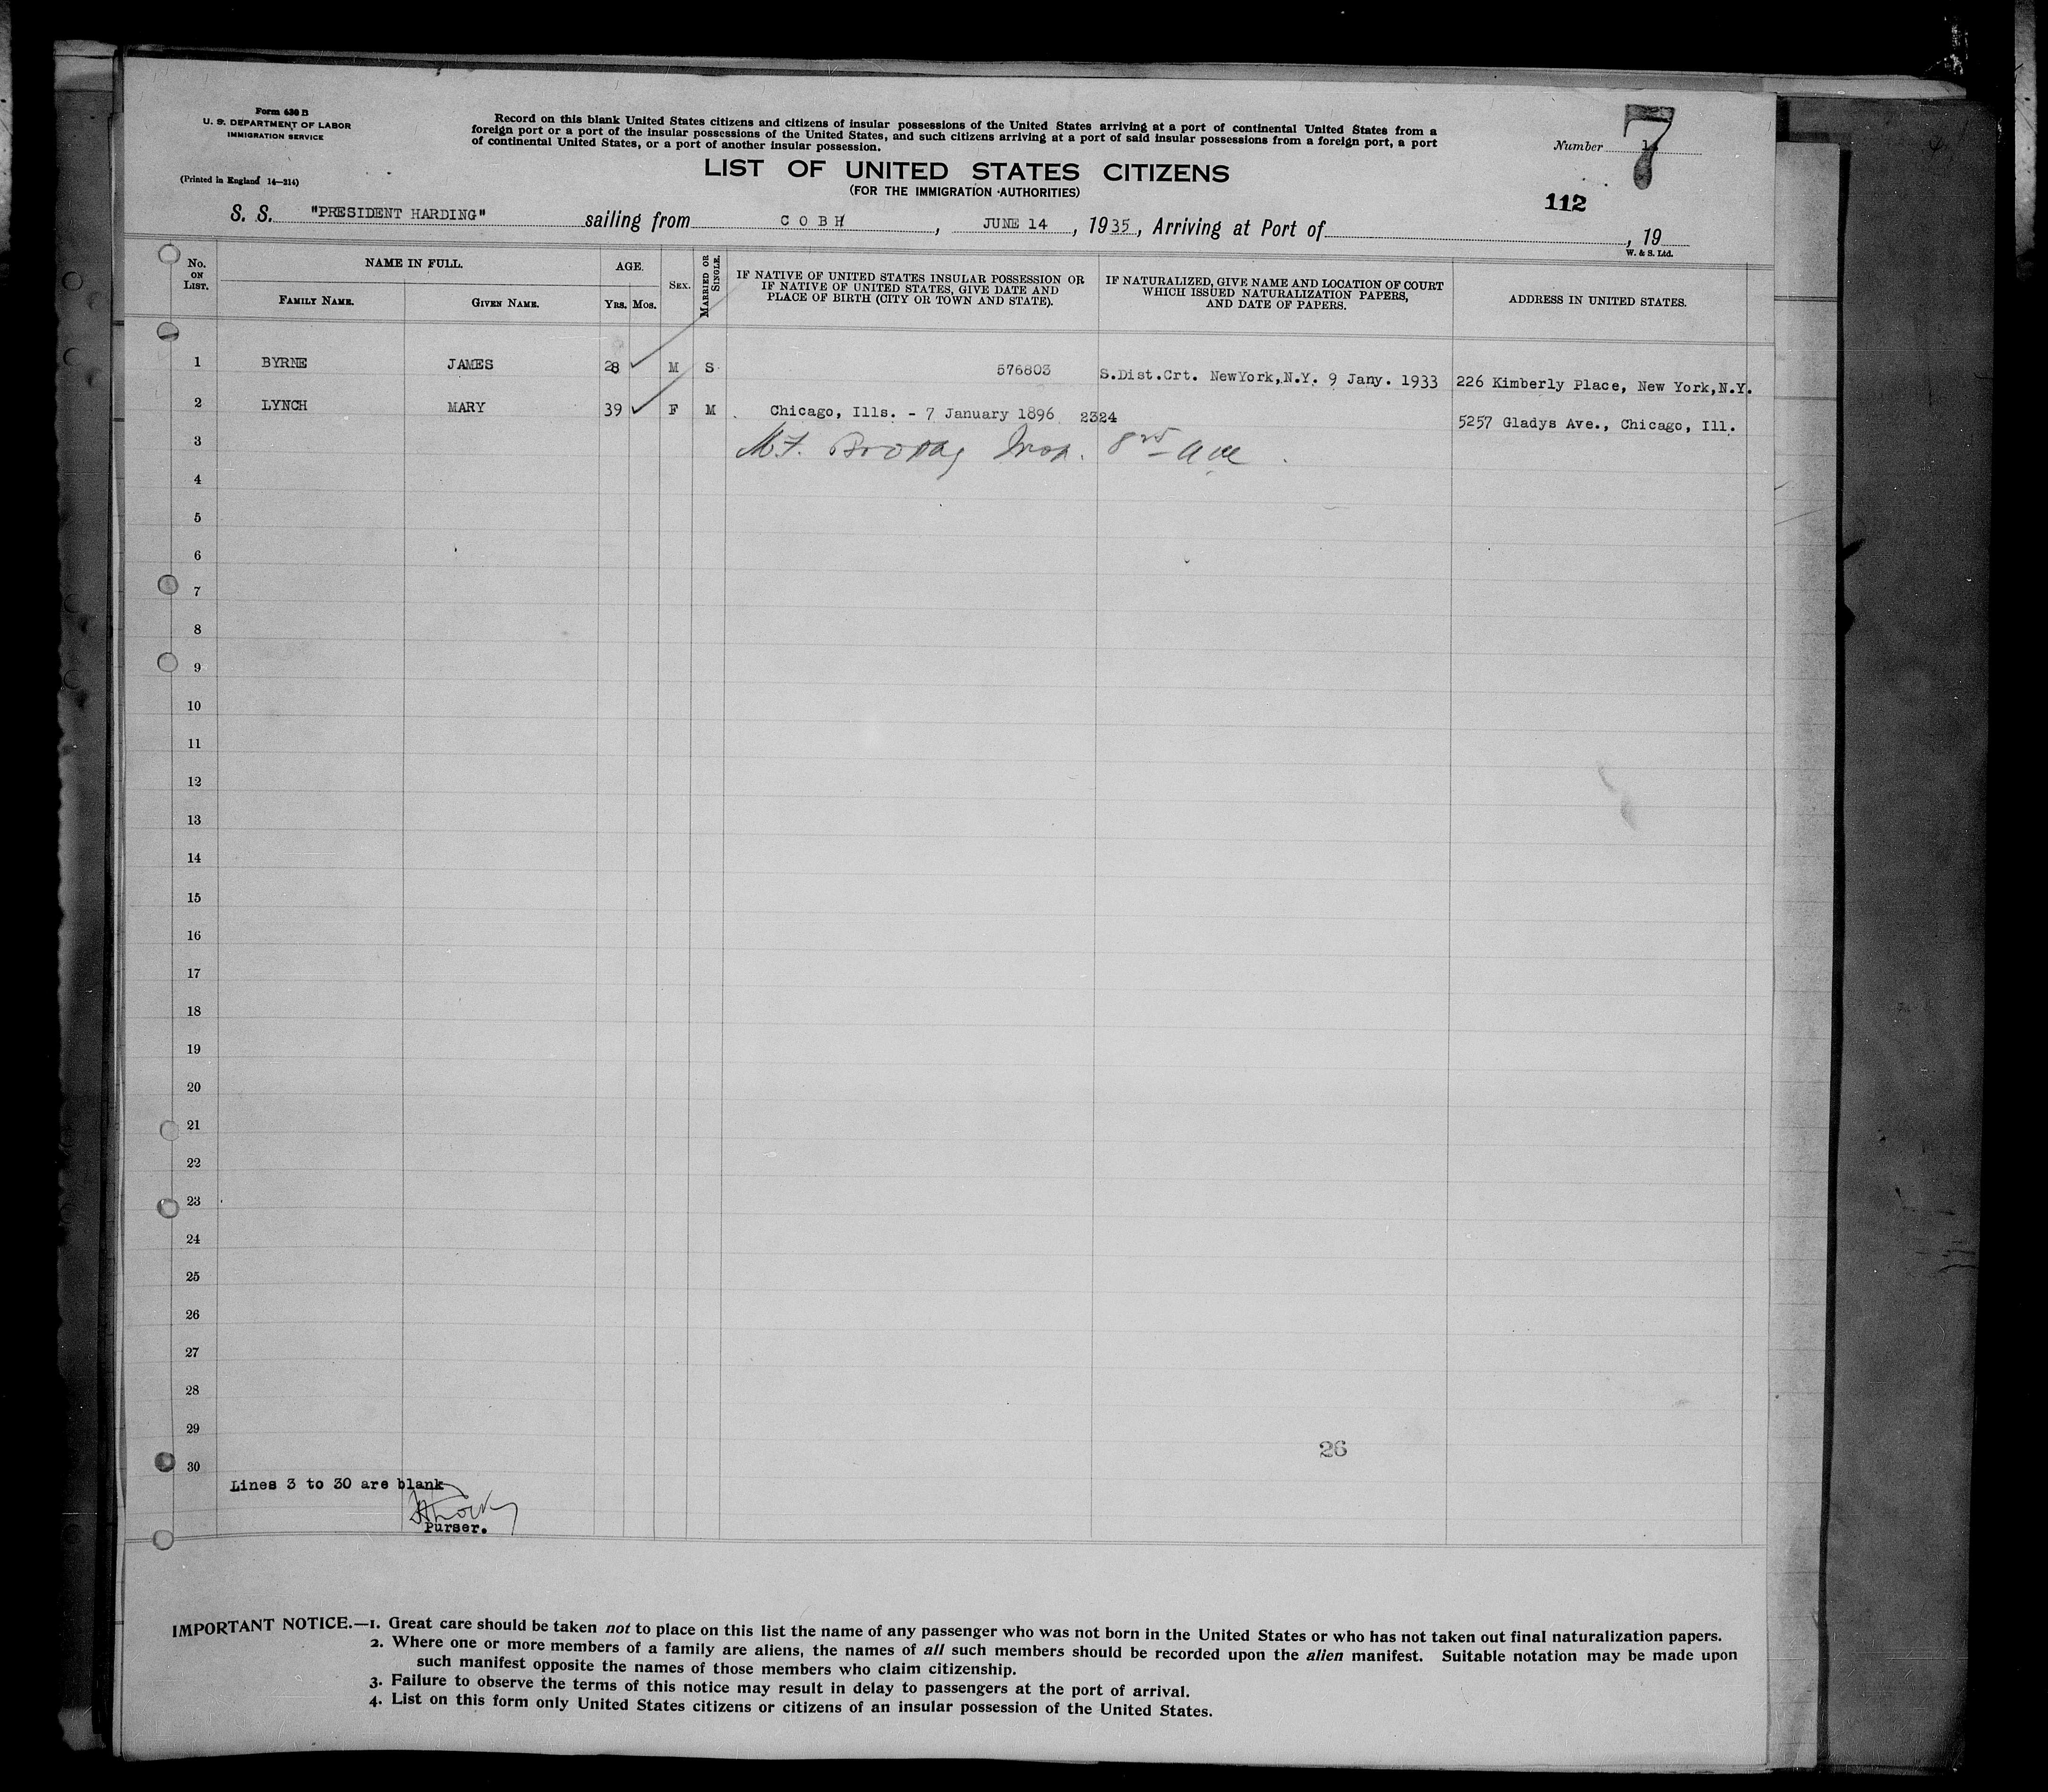 Form 630 B
U. S. DEPARTMENT OF LABOR
IMMIGRATION SERVICE
(Printed in England 14—214)
Record on this blank United States citizens and citizens of insular possessions of the United States arriving at a port of continental United States from a
foreign port or a port of the insular possessions of the United States, and such citizens arriving at a port of said insular possessions from a foreign port, a port
of continental United States, or a port of another insular possession.
LIST OF UNITED STATES CITIZENS
(FOR THE IMMIGRATION AUTHORITIES)
Number 7
112
S. S. "PRESIDENT HARDING" sailing from COBH, JUNE 14, 1935, Arriving at Port of , 19
W. & S. Ltd.
No. ON LIST.
NAME IN FULL.
FAMILY NAME. GIVEN NAME.
AGE.
YRS. MOS.
SEX.
MARRIED OR SINGLE.
IF NATIVE OF UNITED STATES INSULAR POSSESSION OR
IF NATIVE OF UNITED STATES, GIVE DATE AND
PLACE OF BIRTH (CITY OR TOWN AND STATE).
IF NATURALIZED, GIVE NAME AND LOCATION OF COURT
WHICH ISSUED NATURALIZATION PAPERS,
AND DATE OF PAPERS.
ADDRESS IN UNITED STATES.
1 BYRNE JAMES 28 M S 576803 S.Dist.Crt. NewYork,N.Y. 9 Jany. 1933 226 Kimberly Place, New York,N.Y.
2 LYNCH MARY 39 F M Chicago, Ills. - 7 January 1896 2324 5257 Gladys Ave., Chicago, Ill.
3
4
5
6
7
8
9
10
11
12
13
14
15
16
17
18
19
20
21
22
23
24
25
26
27
28
29
26
30
Lines 3 to 30 are blank
Purser.
IMPORTANT NOTICE.—1. Great care should be taken not to place on this list the name of any passenger who was not born in the United States or who has not taken out final naturalization papers.
2. Where one or more members of a family are aliens, the names of all such members should be recorded upon the alien manifest. Suitable notation may be made upon
such manifest opposite the names of those members who claim citizenship.
3. Failure to observe the terms of this notice may result in delay to passengers at the port of arrival.
4. List on this form only United States citizens or citizens of an insular possession of the United States.